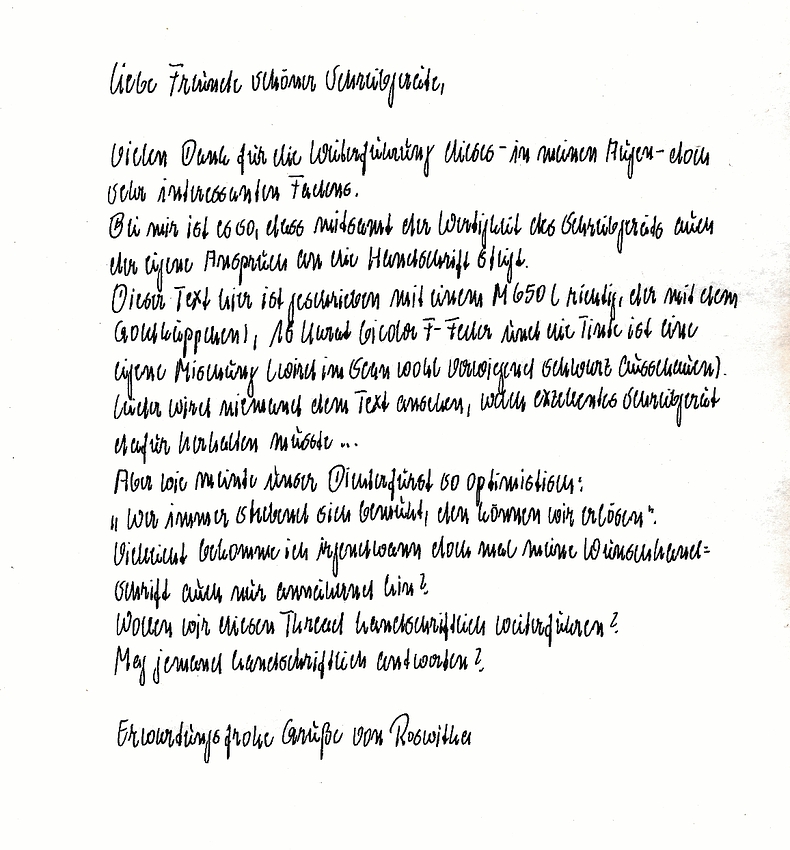 Liebe Freunde schöner Schreibgeräte,
Vielen Dank für die Weiterführung dieses - in meinen Augen - doch
sehr interessanten Fadens.
Bei mir ist es so, dass mitsamt der Wertigkeit des Schreibgeräts auch
der eigene Anspruch an die Handschrift steigt.
Dieser Text hier ist geschrieben mit einem M 650 (richtig, der mit dem
Goldkäppchen), 18 Karat bicolor F-Feder und die Tinte ist eine
eigene Mischung (wird im Scan wohl vorwiegend schwarz ausschauen).
Leider wird niemand dem Text ansehen, welch exzellentes Schreibgerät
dafür herhalten müsste ...
Aber wie meinte unser Dichterfürst so optimistisch:
„Wer immer strebend sich bemüht, den können wir erlösen".
Vielleicht bekomme ich irgendwann doch mal meine Wunschhand=
schrift auch nur annähernd hin?
Wollen wir diesen Thread handschriftlich weiterführen?
Mag jemand handschriftlich antworten?
Erwartungsfrohe Grüße von Roswitha